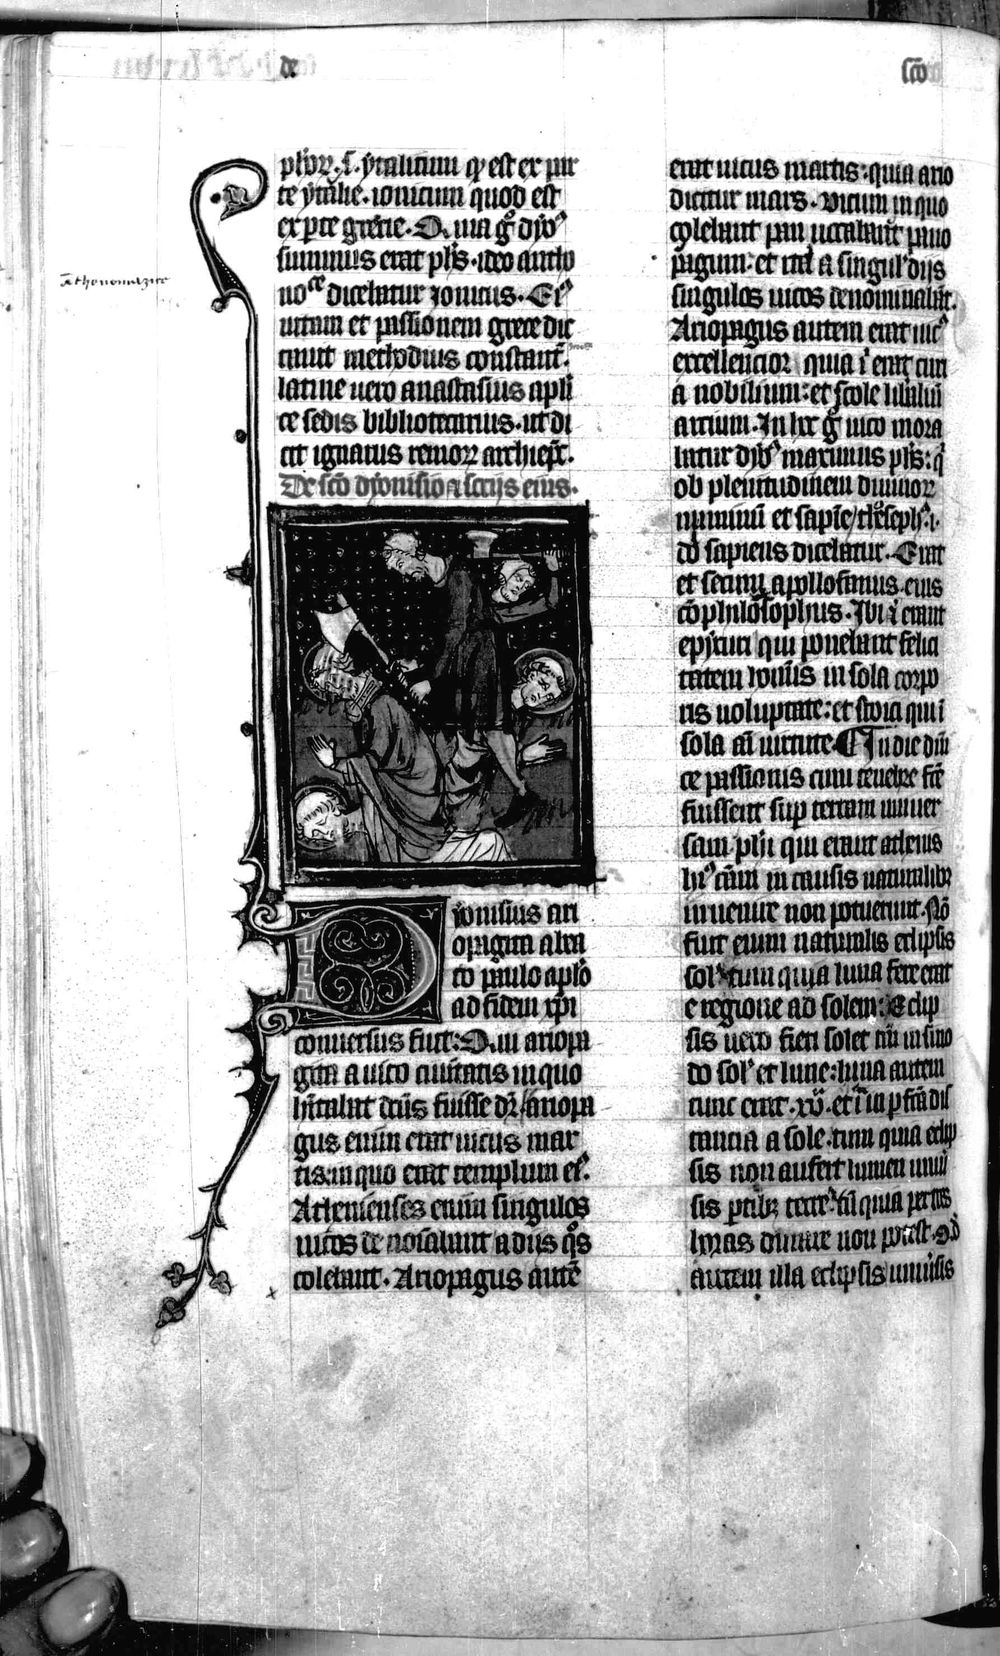 de
sco
ph'orꝝ. s. ytalicum qd est ex par
te ytalie. ionicum quod est
ex parte grecie. Quia g° dyo⁹
summus erat ph's. ideo antho
noce dicebatur ionicus. Ei⁹
uitam et passionem grece dic
tauit methodius constant'.
latine uero anastasius apli
ce sedis bibliotecarius. ut di
cit ignarus remorꝝ archiep'c.
De sco dyonisio & sociis eius.
Dionisius ari
opagita a bea
to paulo aplo
ad fidem xpi
conuersus fuit: Qui ariopa
gita a uico ciuitatis in quo
h'itabat dcus fuisse dr. ariopa
gus enim erat uicus mar
tis: in quo erat templum ei⁹.
Athenienses enim singulos
uicos denoiabant a diis qos
colebant. Ariopagus aute
erat uicus martis: quia ario
dicitur mars. uicum in quo
colebant pan uocabant pano
pagum: et ita a singul' diis
singulos uicos denominabant.
Ariopagus autem erat uic⁹
excellencior quia i erat curi
a nobilium: et scole lib'aliu
artium. In hoc g° uico mora
batur dyo⁹ maximus ph's: qi
ob plenitudinem diuinorꝝ
nominu et sapie theosoph⁹. i.
do sapiens dicebatur. Erat
et secum apollofanius eius
cophilosophus. Ibi i erant
epycuri qui ponebant felici
tatem hois in sola corpo
ris uoluptate: et stoici qui i
sola ai uirtute. In die dni
ce passionis cum tenebre fce
fuissent sup terram uniuer
sam phi qui erant athenis
h⁹ cam in causis naturalibꝫ
inuenire non potuerunt. No
fuit enim naturalis eclipsis
sol' tum quia luna fere erat
e regione ad solem: Eclip
sis uero fieri solet cu in sino
do sol' et lune: luna autem
tunc erat .xv. et i ia p fca dis
tancia a sole. tum quia eclip
sis non aufert lumen uniu
sis ptibꝫ terre. tu quia per tres
horas durare non potest. Qd
autem illa eclipsis uniu'sis